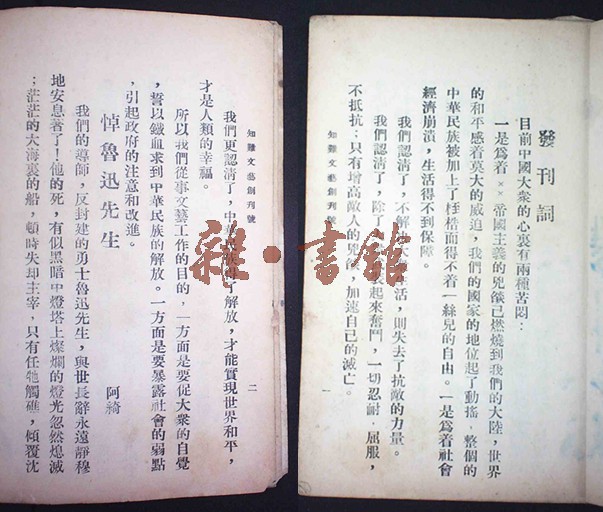 發刊詞
目前中國大衆的心裏有兩種苦悶：
一是爲着××帝國主義的兇燄已燃燒到我們的大陸，世界
的和平感着莫大的威迫，我們的國家的地位起了動搖，整個的
中華民族被加上了桎梏而得不着一絲兒的自由。一是爲着社會
經濟崩潰，生活得不到保障。
我們認清了，不解 大 活，則失去了抗敵的力量。
我們認清了，除了 起來奮鬥，一切忍耐，屈服，
不抵抗；只有增高敵人的兇燄，加速自己的滅亡。
知難文藝創刊號
一
知難文藝創刊號
二
我們更認清了，中華民族得了解放，才能實現世界和平，
才是人類的幸福。
所以我們從事文藝工作的目的，一方面是要促大衆的自覺
，誓以鐵血求到中華民族的解放。一方面是要暴露社會的弱點
，引起政府的注意和改進。
悼魯迅先生
阿綺
我們的導師，反封建的勇士魯迅先生，與世長辭永遠靜穆
地安息著了！他的死，有似黑暗中燈塔上燦爛的燈光忽然熄滅
；茫茫的大海裏的船，頓時失却主宰，只有任牠觸礁，傾覆沈
雜·書館